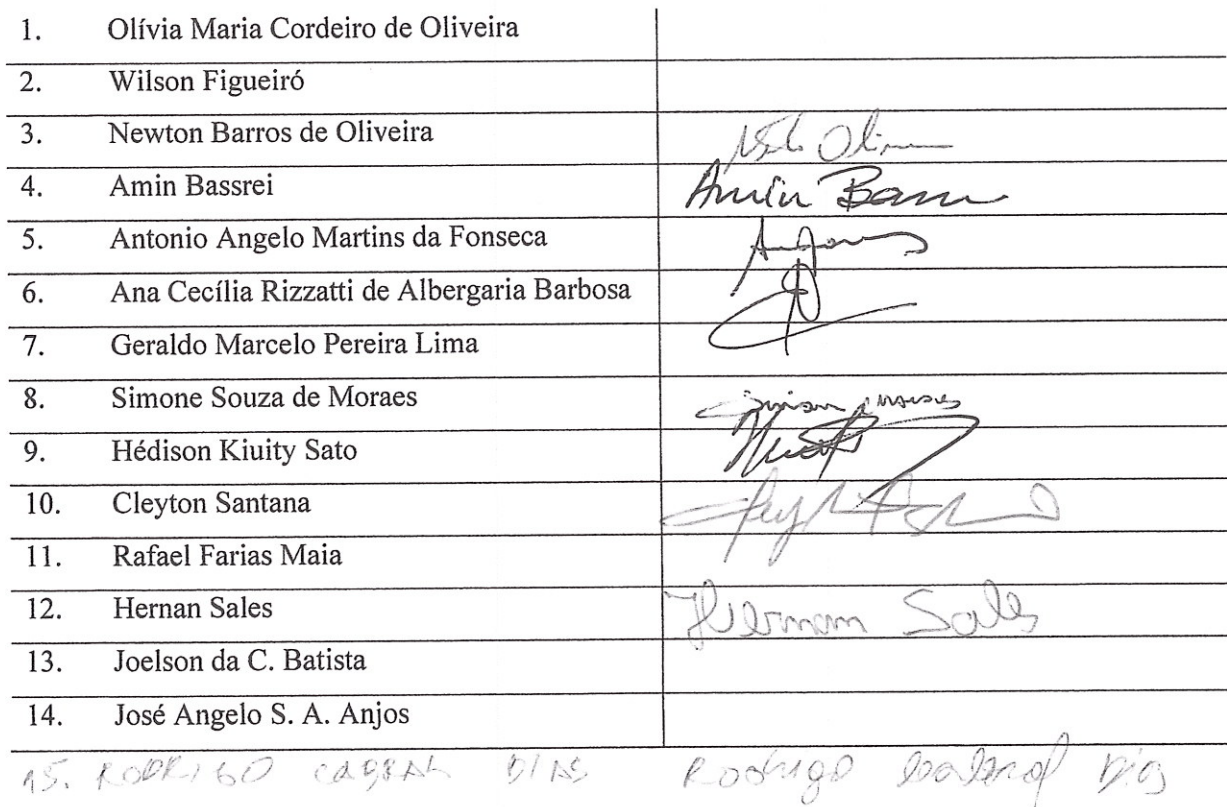 1. Olívia Maria Cordeiro de Oliveira
2. Wilson Figueiró
3. Newton Barros de Oliveira
4. Amin Bassrei Amin Bass
5. Antonio Angelo Martins da Fonseca
6. Ana Cecília Rizzatti de Albergaria Barbosa
7. Geraldo Marcelo Pereira Lima
8. Simone Souza de Moraes
9. Hédison Kiuity Sato
10. Cleyton Santana
11. Rafael Farias Maia
12. Hernan Sales Hernan Sales
13. Joelson da C. Batista
14. José Angelo S. A. Anjos
15. RODRIGO CABRAL DIAS Rodrigo Cabral Dias